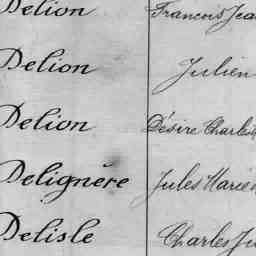 Delion François Jea
Delion Julien
Delion Désiré Charles
Delignère Jules Marie
Delisle Charles Ju